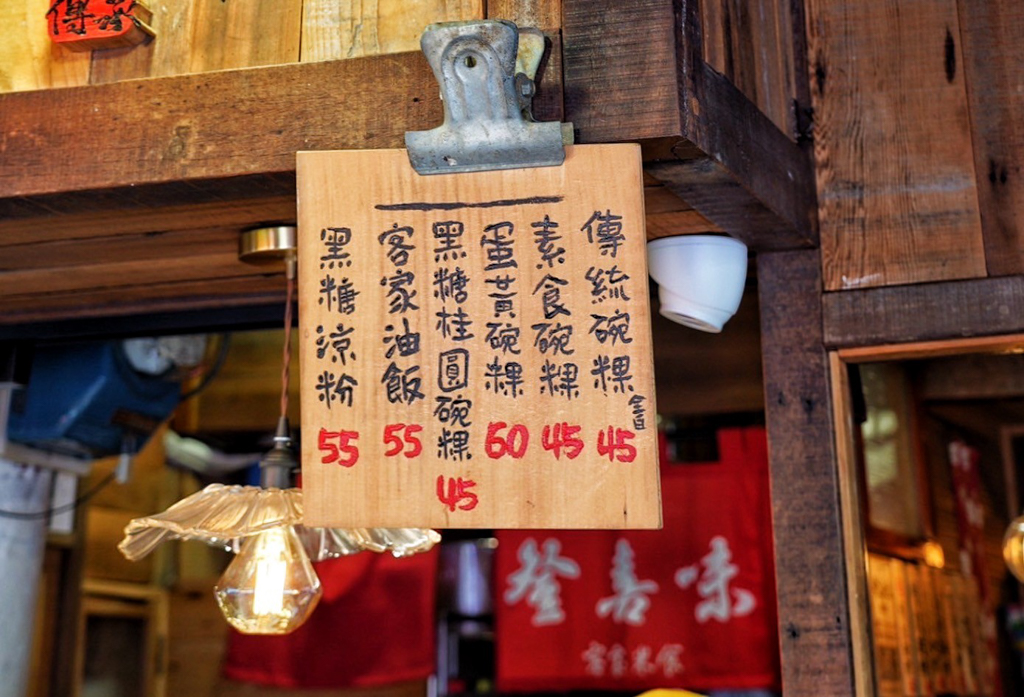 傳承
傳統碗粿 全白 45
素食碗粿 45
蛋黃碗粿 60
黑糖桂圓碗粿 45
客家油飯 55
黑糖涼粉 55
登喜味
客家米食